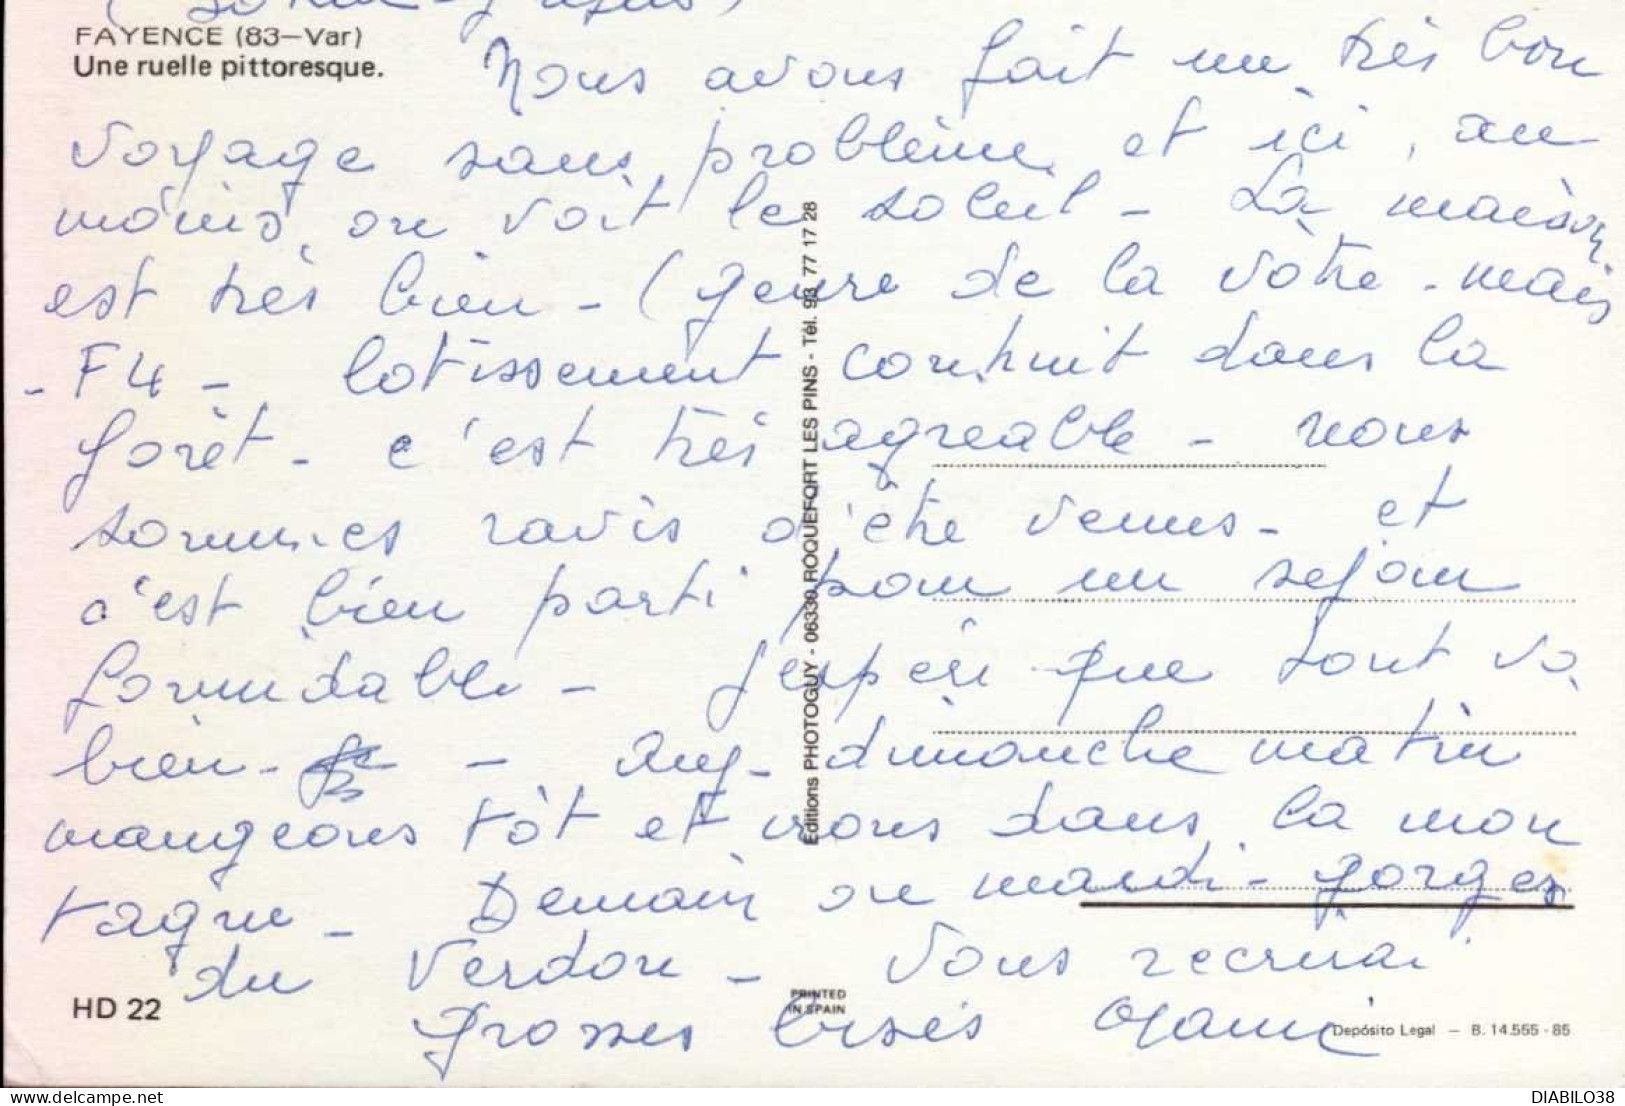 FAYENCE (83–Var)
Une ruelle pittoresque.
Nous avons fait un très bon
voyage sans problème et ici, au
moins on voit le soleil - La maison
est très bien - (genre de la vôtre - mais
- F4 - lotissement construit dans la
forêt - c'est très agreable - nous
sommes ravis d'être venus - et
c'est bien parti pour un sejour
formidable - J'espère que tout va
bien - - Auj. dimanche matin
mangeons tôt et irons dans la mon
tagne - Demain ou mardi - gorges
du Verdon - Vous recrirai
grosses bises
HD 22
PRINTED
IN SPAIN
Depósito Legal – B. 14.555 - 85
Editions PHOTOGUY - 06330 ROQUEFORT LES PINS - Tél. 93 77 17 28
DIABILO38